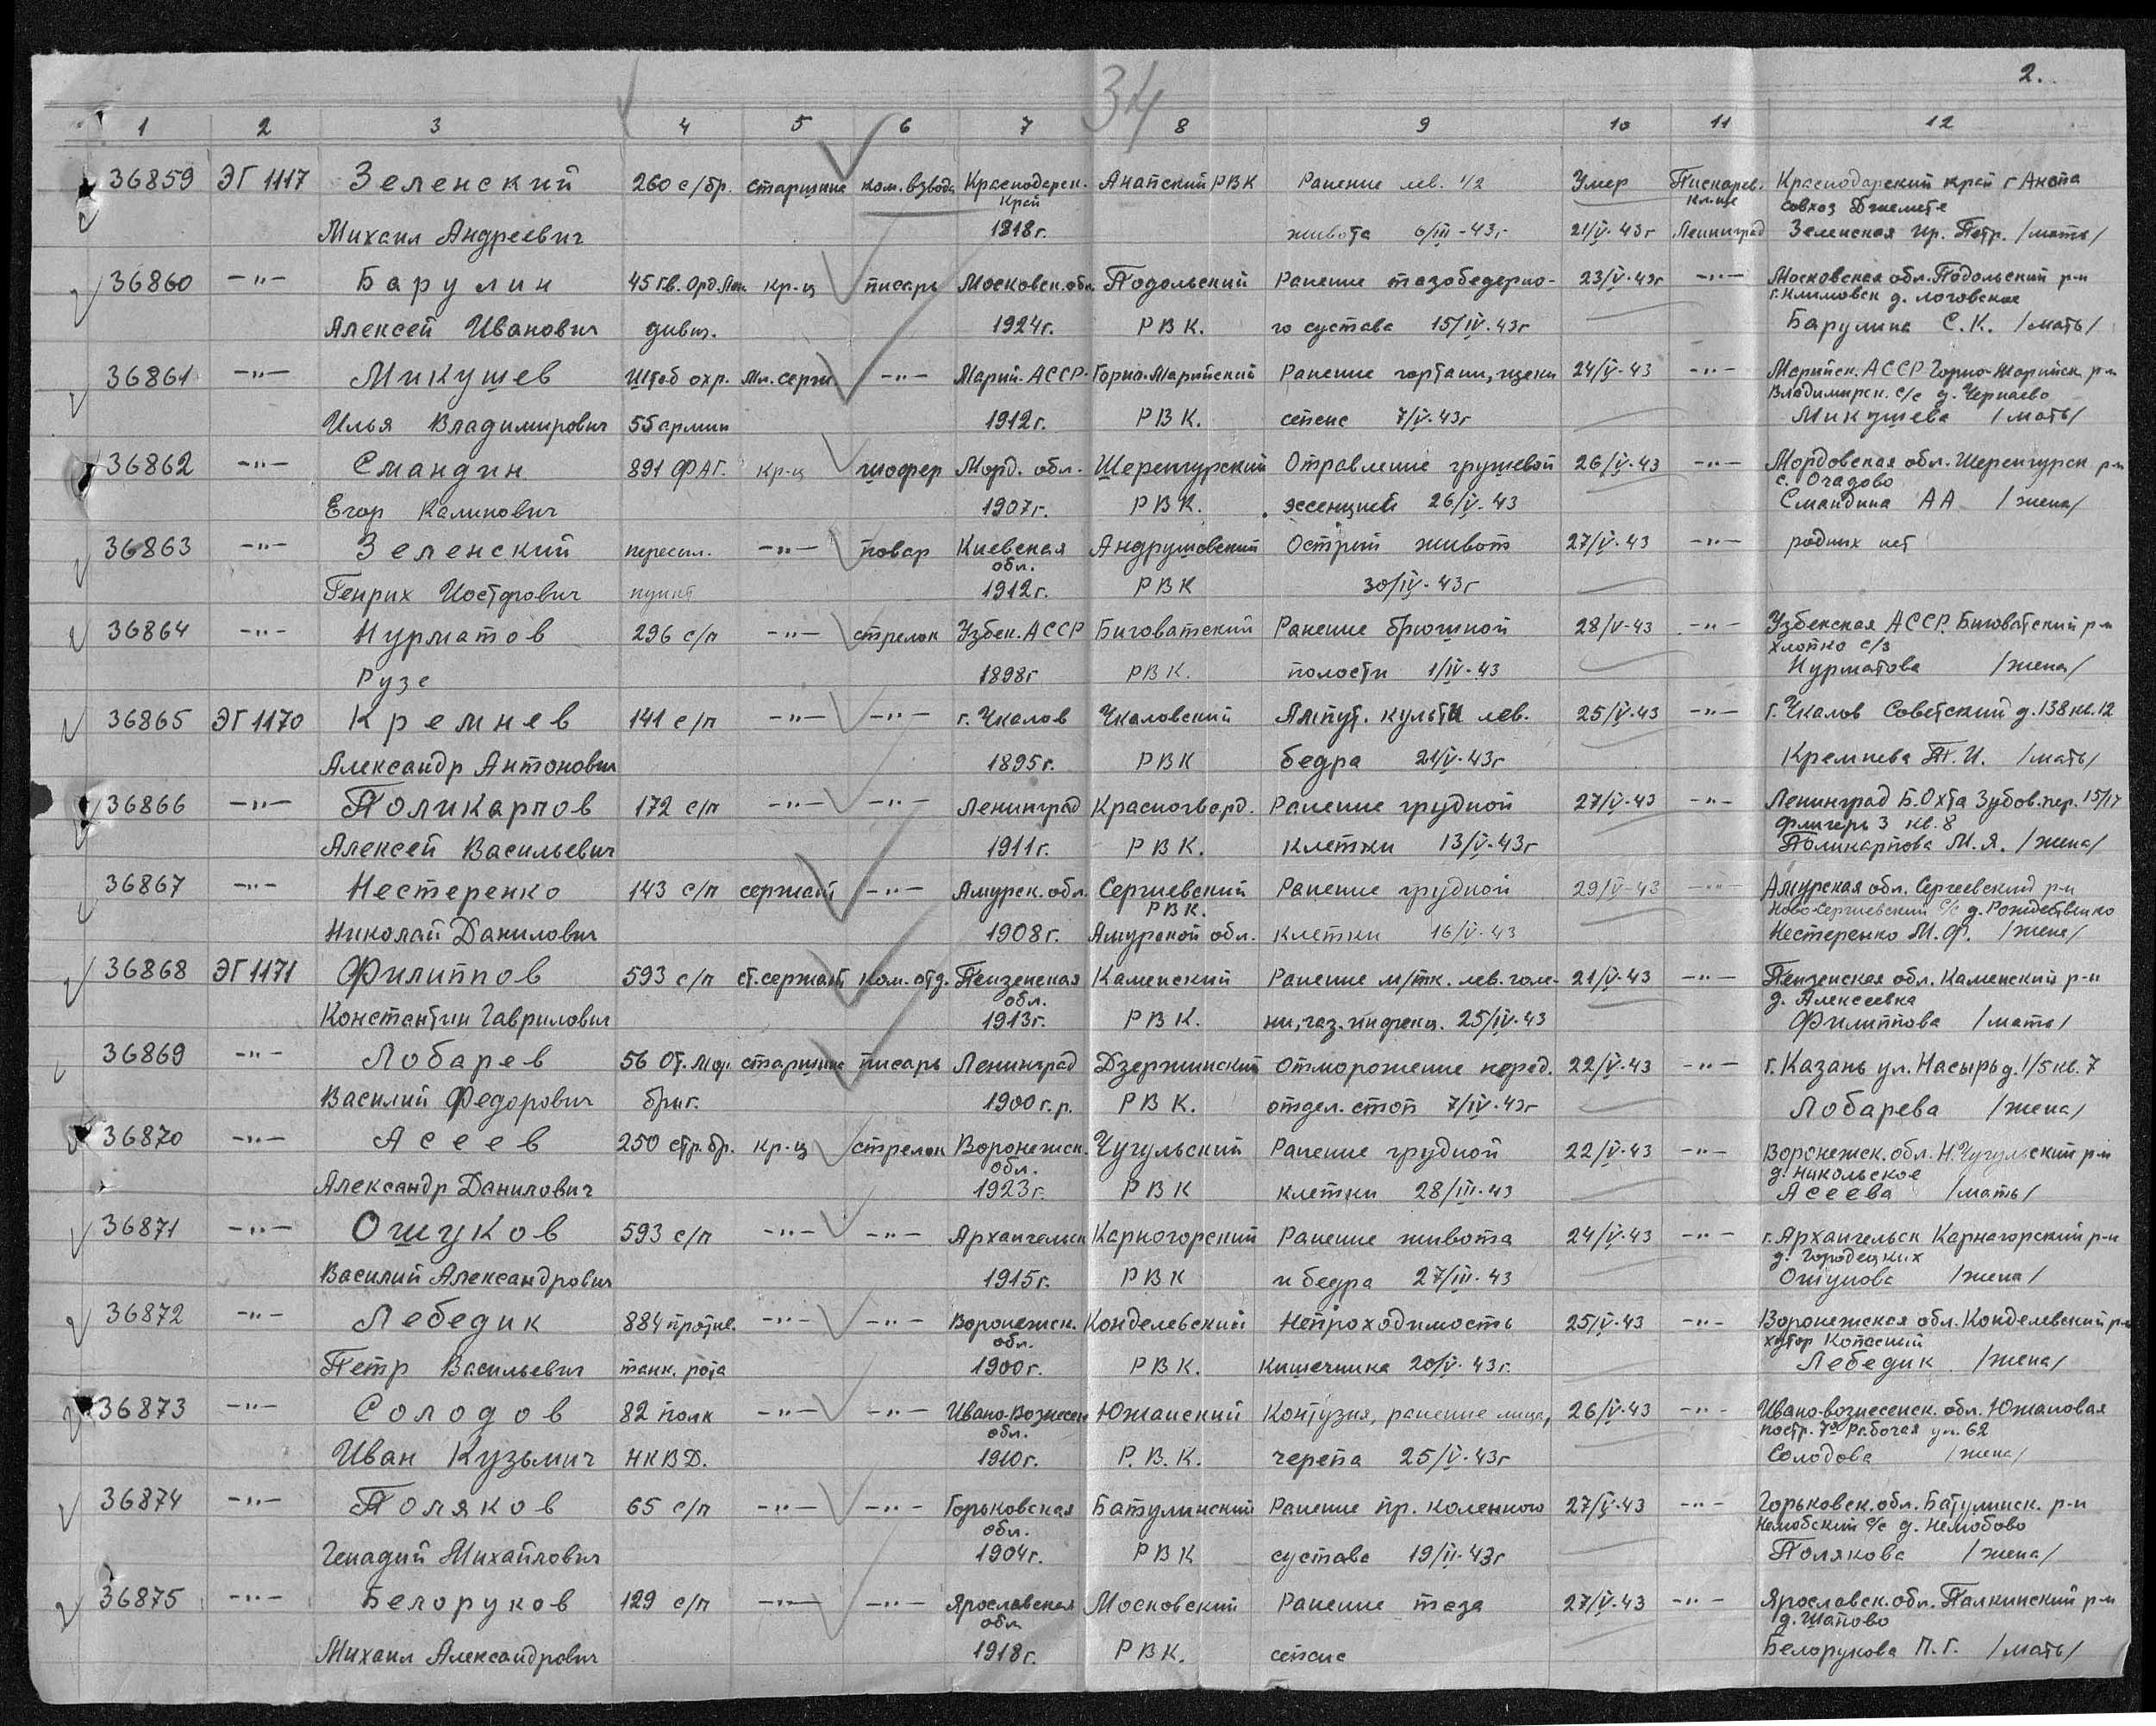 34
2.
1 2 3 4 5 6 7 8 9 10 11 12
36859 ЭГ 1117 Зеленский 260 с/бр. старшина ком. взвода Краснодарск. Анапский РВК Ранение лев. 1/2 Умер Пискарев. Краснодарский край г Анапа
край кл-ще совхоз Джемете
Михаил Андреевич 1918г. живота 6/III-43г 21/V-43г Ленинград Зеленская Ир. Петр. /мать/
36860 -"- Барулин 45 гв. Орд. Лен. кр-ц писарь Московск. обл. Подольский Ранение тазобедерно- 23/V-43г -"- Московская обл. Подольский р-н
г. Климовск д. логовское
Алексей Иванович дивиз. 1924г. РВК. го сустава 15/IV-43г Барулина С.К. /мать/
36861 -"- Микушев Штаб охр. Мл. серж. -"- Марий. АССР Горно-Марийский Ранение гортани, щеки 24/V-43 -"- Марийск. АССР Горно-Марийск р-н
Владимирск. с/с д. Чернаево
Илья Владимирович 55 армии 1912г. РВК. сепсис 7/V-43г Микушева /мать/
36862 -"- Смандин 891 ФАГ. кр-ц шофер Морд. обл. Шеренгурский Отравление грушевой 26/V-43 -"- Мордовская обл. Шеренгурск р-н
с. Очадово
Егор Калинович 1907г. РВК. эссенцией 26/V-43 Смандина АА /жена/
36863 -"- Зеленский пересыл. -"- повар Киевская Андрушовский Острый живот 27/V-43 -"- родных нет
обл.
Генрих Иостфович пункт 1912г. РВК 30/IV-43г
36864 -"- Нурматов 296 с/п -"- стрелок Узбек. АССР Биговатский Ранение брюшной 28/V-43 -"- Узбекская АССР. Биговатский р-н
хлопко с/з
Рузе 1898г РВК. полости 1/IV-43 Нурматова /жена/
36865 ЭГ 1170 Кремнев 141 с/п -"- -"- г. Чкалов Чкаловский Ампут. культи лев. 25/V-43 -"- г. Чкалов Советский д. 138 кв. 12
Александр Антонович 1895г. РВК бедра 21/V-43г Кремнева Т. И. /мать/
36866 -"- Поликарпов 172 с/п -"- -"- Ленинград Красногвард. Ранение грудной 27/V-43 -"- Ленинград Б. Охта Зубов. пер. 15/17
флигерь 3 кв. 8
Алексей Васильевич 1911г. РВК. клетки 13/V-43г Поликарпова М.Я. /жена/
36867 -"- Нестеренко 143 с/п сержант -"- Амурск. обл. Сергиевский Ранение грудной 29/V-43 -"- Амурская обл. Сергеевский р-н
РВК. Ново-Сергиевский с/с д. Рождественко
Николай Данилович 1908г. Амурской обл. клетки 16/V-43 Нестеренко М. Ф. /жена/
36868 ЭГ 1171 Филиппов 593 с/п ст. сержант ком. отд. Пензенская Каменский Ранение м/тк. лев. голе- 21/V-43 -"- Пензенская обл. Каменский р-н
обл. д. Алексеевка
Константин Гаврилович 1913г. РВК. ни, газ. инфекц. 25/IV-43 Филиппова /мать/
36869 -"- Лобарев 56 От. мор. старшина писарь Ленинград Дзержинский Отморожение перед. 22/V-43 -"- г. Казань ул. Насырь д. 1/5 кв. 7
Василий Федорович бриг. 1900 г.р. РВК. отдел. стоп 7/IV-43г Лобарева /жена/
36870 -"- Асеев 250 стр. бр. кр-ц стрелок Воронежск. Чугульский Ранение грудной 22/V-43 -"- Воронежск. обл. Н. Чугульский р-н
обл. д. Никольское
Александр Данилович 1923г. РВК клетки 28/III-43 Асеева /мать/
36871 -"- Ошуков 593 с/п -"- -"- Архангельск Карногорский Ранение живота 24/V-43 -"- г. Архангельск Карнагорский р-н
д. Городецких
Василий Александрович 1915г. РВК и бедра 27/III-43 Ошукова /жена/
36872 -"- Лебедик 884 против. -"- -"- Воронежск. Конделевский Непроходимость 25/V-43 -"- Воронежская обл. Конделевский р-н
обл. хутор Копаский
Петр Васильевич танк. рота 1900г. РВК. кишечника 20/V-43г. Лебедик /жена/
36873 -"- Солодов 82 полк -"- -"- Ивано-Вознесен Южанский Контузия, ранение лица, 26/V-43 -"- Ивано-вознесенск. обл. Южановая
обл. 7ая Рабочая ул. 62
Иван Кузьмич НКВД. 1910г. Р.В.К. черепа 25/V-43г Солодова /жена/
36874 -"- Поляков 65 с/п -"- -"- Горьковская Батулинский Ранение пр. коленного 27/V-43 -"- Горьковск. обл. Батулинск. р-н
обл. Нелюбский с/с д. Нелюбово
Генадий Михайлович 1904г. РВК сустава 19/II-43г Полякова /жена/
36875 -"- Белоруков 129 с/п -"- -"- Ярославская Московский Ранение таза 27/V-43 -"- Ярославск. обл. Палкинский р-н
обл д. Шапово
Михаил Александрович 1918г. РВК. сепсис Белорукова П.Г. /мать/